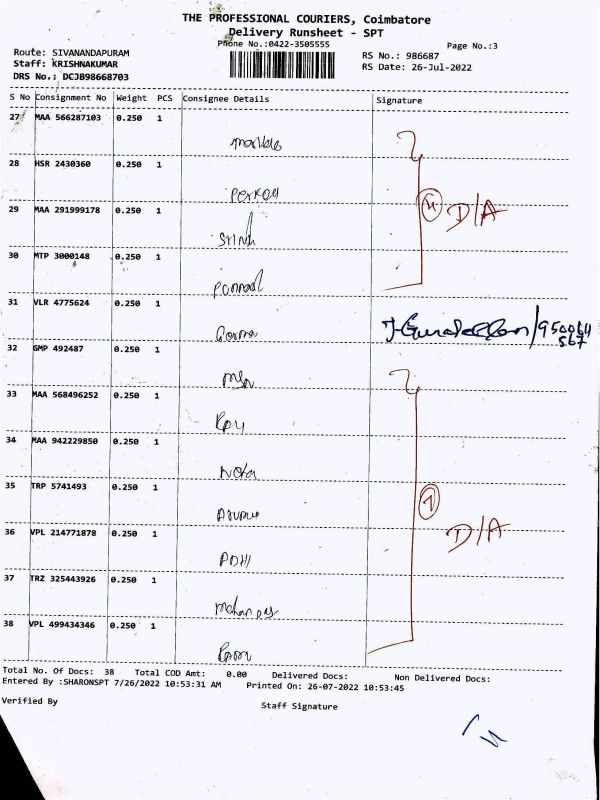 THE PROFESSIONAL COURIERS, Coimbatore
Delivery Runsheet - SPT
Phone No.:0422-3505555
Page No.:3
Route: SIVANANDAPURAM
RS No.: 986687
Staff: KRISHNAKUMAR
RS Date: 26-Jul-2022
DRS No.: DCJB98668703
S No Consignment No Weight PCS Consignee Details Signature
27 MAA 566287103 0.250 1
28 HSR 2430360 0.250 1
29 MAA 291999178 0.250 1
4 D/A
30 MTP 3000148 0.250 1
31 VLR 4775624 0.250 1
32 GMP 492487 0.250 1
33 MAA 568496252 0.250 1
34 MAA 942229850 0.250 1
35 TRP 5741493 0.250 1
7 D/A
36 VPL 214771878 0.250 1
37 TRZ 325443926 0.250 1
38 VPL 499434346 0.250 1
Total No. Of Docs: 38 Total COD Amt: 0.00 Delivered Docs: Non Delivered Docs:
Entered By :SHARONSPT 7/26/2022 10:53:31 AM Printed On: 26-07-2022 10:53:45
Verified By Staff Signature